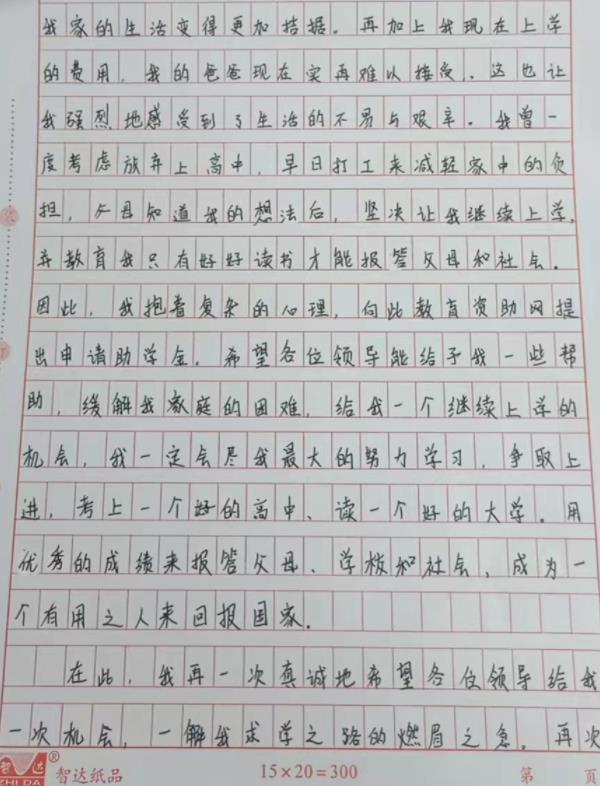 我家的生活变得更加拮据。再加上我现在上学
的费用，我的爸爸现在实再难以接受。这也让
我强烈地感受到了生活的不易与艰辛。我曾一
度考虑放弃上高中，早日打工来减轻家中的负
担，父母知道我的想法后，坚决让我继续上学，
并教育我只有好好读书才能报答父母和社会。
因此，我抱着复杂的心理，向此教育资助网提
出申请助学金。希望各位领导能给予我一些帮
助，缓解我家庭的困难，给我一个继续上学的
机会，我一定会尽我最大的努力学习，争取上
进，考上一个好的高中、读一个好的大学。用
优秀的成绩来报答父母、学校和社会，成为一
个有用之人来回报国家。
在此，我再一次真诚地希望各位领导给我
一次机会，一解我求学之路的燃眉之急。再次
智达 ® 智达纸品 15×20=300 第 页
ZHI DA